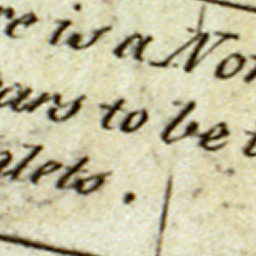 re is a No
ars to be t
lets.